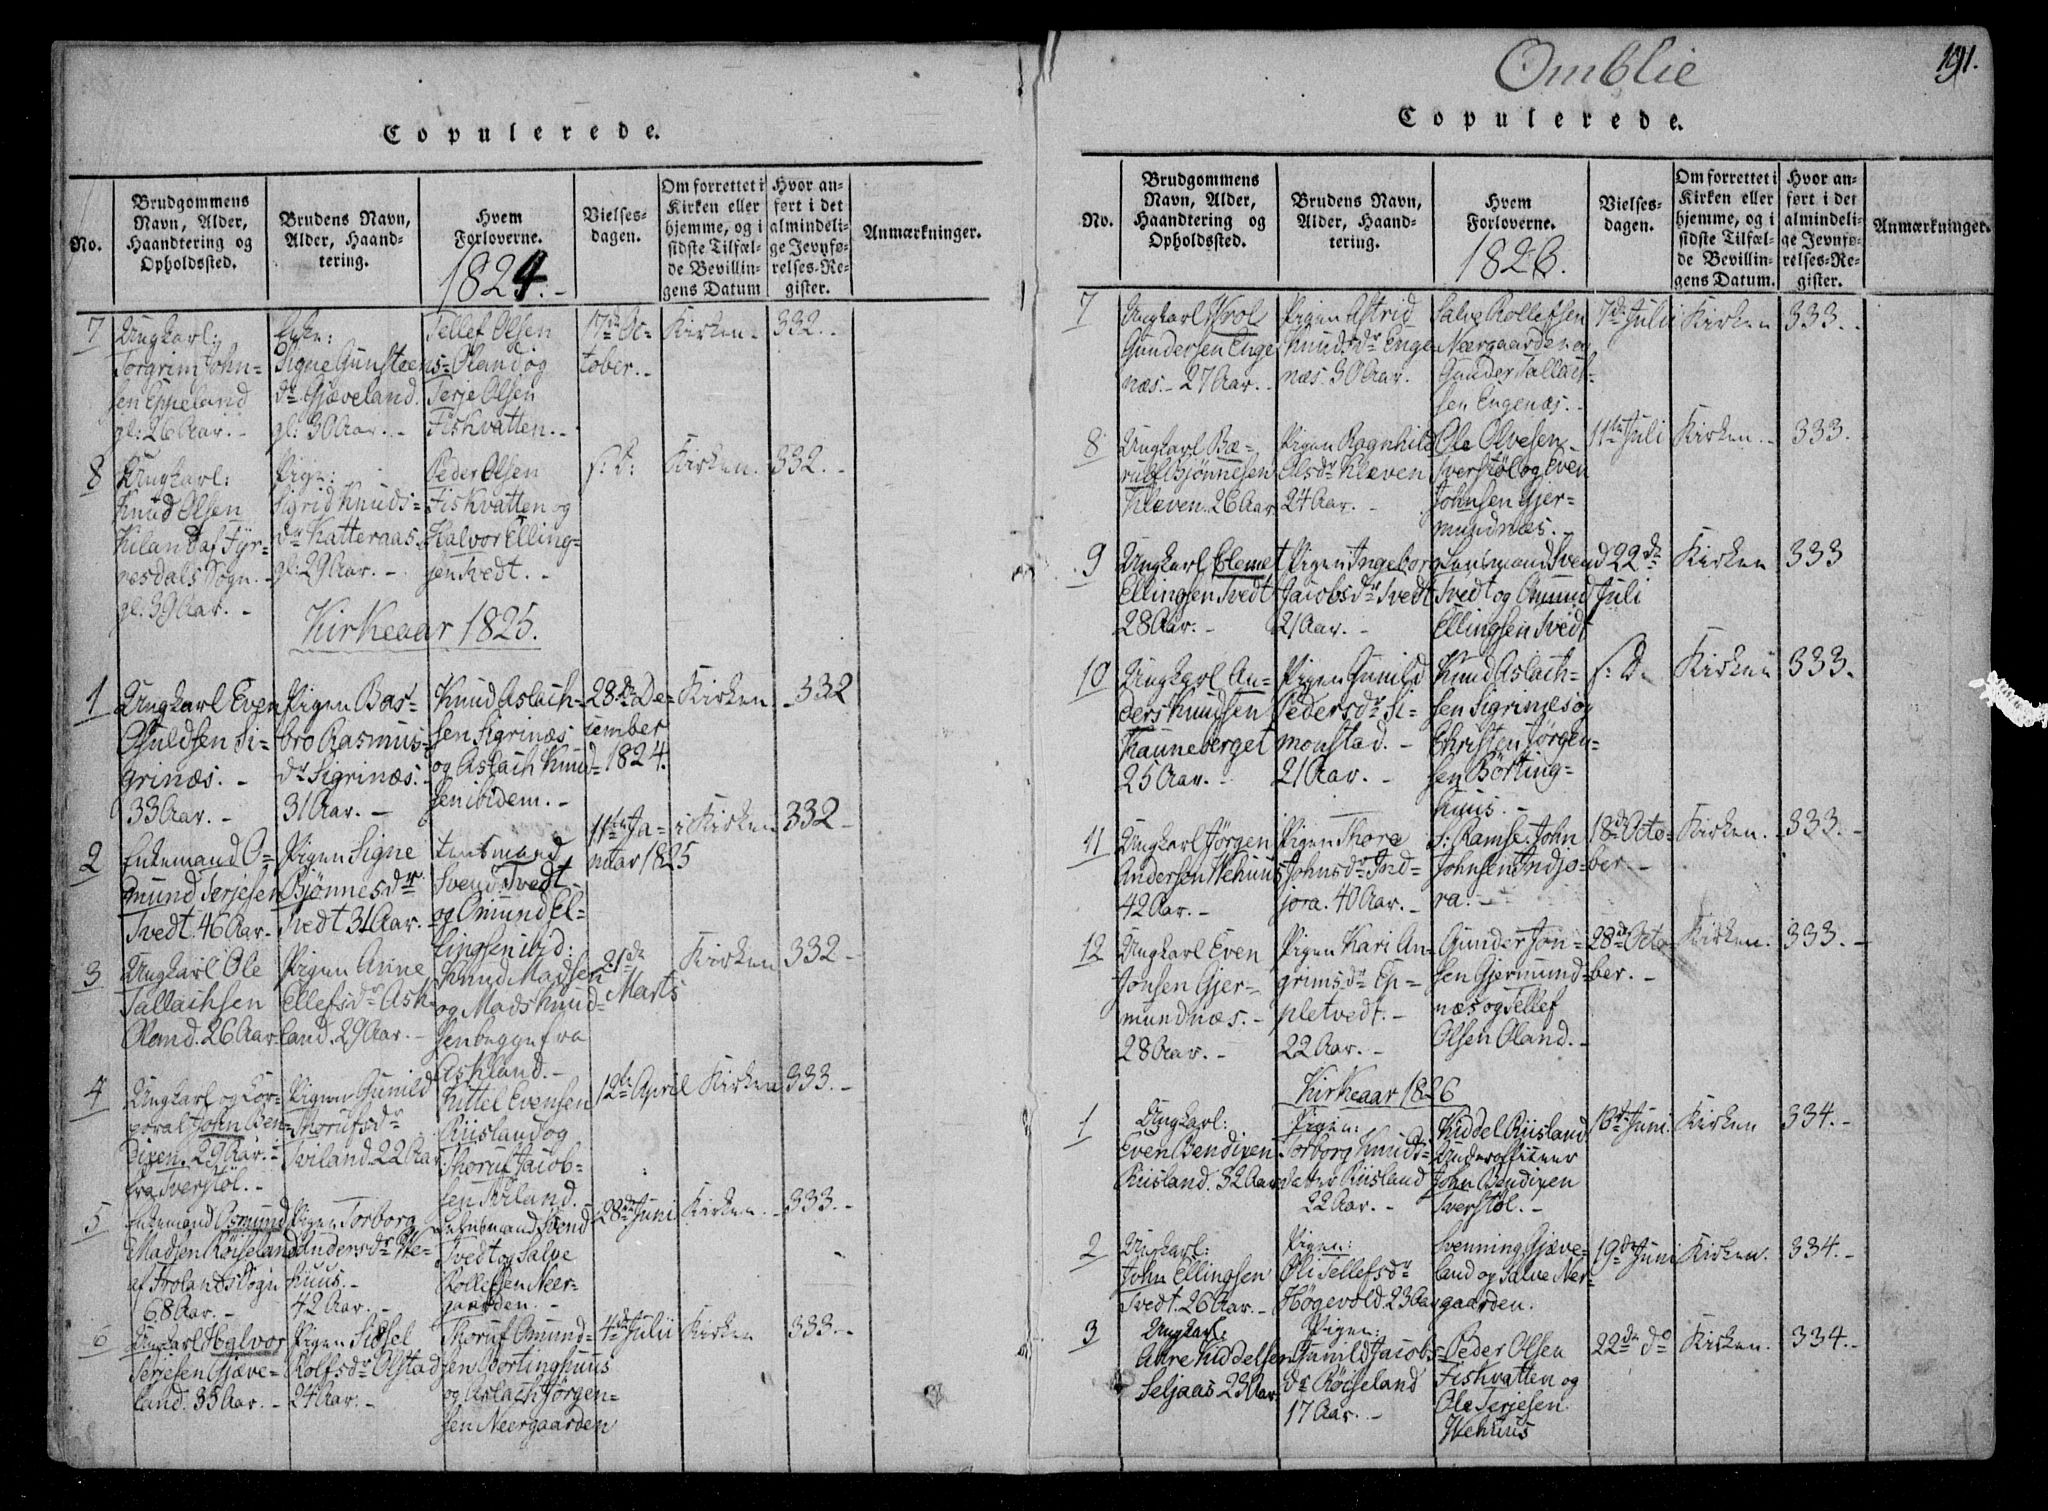 Omblie
191.
Copulerede.
No.
Brudgommens
Navn, Alder,
Haandtering og
Opholdssted.
Brudens Navn,
Alder, Haand-
tering.
Hvem
Forloverne.
1824.-
Vielses-
dagen.
Om forrettet i
Kirken eller
hjemme, og i
sidste Tilfæl-
de Bevillin-
gens Datum
Hvor an-
ført i det
almindeli-
ge Jevnfø-
relses-Re-
gister.
Anmærkninger.
7
Ungkarl:
Torgrim John-
sen Eppeland
gl: 26 Aar.-
Enke:
Signe Gunsteens-
dr. Gjæveland.
gl: 30 Aar.-
Tellef Olsen
Øland og
Terje Olsen
Fiskvatten.-
17de Oc-
tober.-
Kirken.
332.
8
Ungkarl:
Knud Olsen
Kiland af Fyr-
nesdals Sogn.
gl: 39 Aar.-
Pige:
Sigrid Knuds-
dr Katteraas.
gl: 29 Aar.-
Peder Olsen
Fiskvatten og
Halvor Elling-
sen Tvedt.-
s: D:
Kirken.
332.-
Kirkeaar 1825.
1
Ungkarl Even
Osuldsen Si-
grinæs.-
33 Aar.-
Pigen Bas-
bro Rasmus-
dr Sigrinæs.
31 Aar.-
Knud Aslach-
sen Sigrinæs
og Aslach Knud-
sen ibidem.-
28de De-
cember
1824.
Kirken.
332
2
Enkemand O-
mund Terjesen
Tvedt. 46 Aar.
Pigen Signe
Bjønnesdr
Tvedt 31 Aar.-
Lensmand
Svend Tvedt
og Omund El-
lingsen ibid:
11te Ja-
nuar 1825
i Kirken
332-
3
Ungkarl Ole
Tallachsen
Øland. 26 Aar.
Pigen Anne
Ellefsdr Ask-
land. 29 Aar.-
Knud Madsen
og Mads Knud-
sen begge fra
Askland.-
21de
Marts
Kirken
332-
4
Ungkarl og Cor-
poral John Ben-
dixen. 29 Aar.-
fra Sverstøl.-
Pigen Gunild
Thorufsdr
Tviland. 22 Aar.
Kittel Evensen
Riisland og
Thoruf Jacob-
sen Tviland.
12te April
Kirken
333.-
5
Enkemand Osmund
Madsen Røiseland
af Frolands Sogn
68 Aar.-
Pigen Torborg
Andersdr We-
huus.-
42 Aar.-
Lensmand Svend
Tvedt og Salve
Rollefsen Neer-
gaarden.-
28de Juni
Kirken.
333.-
6
Ungkarl Halvor
Terjesen Gjæve-
land. 35 Aar.-
Pigen Sidsel
Rolfsdr Olstad
24 Aar.-
Thoruf Omund-
sen Børtinghuus
og Aslach Jørgen-
sen Neergaarden
4de Julii
Kirken
333.-
Copulerede.
No.
Brudgommens
Navn, Alder,
Haandtering og
Opholdssted.
Brudens Navn,
Alder, Haand-
tering.
Hvem
Forloverne.
1826.
Vielses-
dagen.
Om forrettet i
Kirken eller
hjemme, og i
sidste Tilfæl-
de Bevillin-
gens Datum.
Hvor an-
ført i det
almindeli-
ge Jevnfø-
relses-Re-
gister.
Anmærkninger.
7
Ungkarl Wrol
Gundersen Enge
næs.- 27 Aar.-
Pigen Astrid
Knudsdr Enge
næs. 30 Aar.
Salve Rollefsen
Neergaarden og
Gunder Tallach-
sen Engenæs.-
7de Julii
Kirken
333.-
8
Ungkarl Bæ-
rulf Bjønnesen
Kleven. 26 Aar
Pigen Ragnhild
Olsdr Kleven
24 Aar.-
Ole Olvesen
Sverstøl og Even
Johnsen Gjer-
mundnæs.-
11te Juli
Kirken.-
333.
9
Ungkarl Clemet
Ellingsen Tvedt
28 Aar.-
Pigen Ingeborg
Jacobsdr Tvedt
21 Aar.-
Lensmand Svend
Tvedt og Omund
Ellingsen Tvedt
22de
Juli
Kirken
333
10
Ungkarl An-
ders Knudsen
Hauneberget
25 Aar.-
Pigen Gunild
Pedersdr Si-
monstad.-
21 Aar.-
Knud Aslach-
sen Sigrinæs og
Christen Jørgen-
sen Børting-
huus.-
s: D.
Kirken
333.
11
Ungkarl Jørgen
Andersen Wehuus
42 Aar.-
Pigen Thore
Johnsdr Ind-
jora. 40 Aar.-
S: Ramse. John
Johnsen Indjo-
ra.-
18de Octo-
ber.-
Kirken.
333.-
12
Ungkarl Even
Jonsen Gjer-
mundnæs.-
28 Aar.-
Pigen Kari An-
grimsdr Ep-
pletvedt.-
22 Aar.-
Gunder Jon-
sen Gjermund-
næs og Tellef
Olsen Øland.-
28de Octo
ber.-
Kirken.
333.-
Kirkeaar 1826
1
Ungkarl:
Even Bendixen
Riisland. 32 Aar
Pigen:
Torborg Knuds-
datter Riisland
22 Aar.-
Kiddel Riisland
Underofficeer
John Bendixen
Sverstøl.-
18de Juni.
Kirken
334.-
2
Ungkarl:
John Ellingsen
Tvedt. 26 Aar.-
Pigen:
Oli Tellefsdr
Høgevold. 23 Aar
Svenning Gjæve-
land og Salve Ner-
gaarden.
19de Juni
Kirken.
334.-
3
Ungkarl:
Aure Kiddelsen
Seljaas 23 Aar.
Pigen:
Gunild Jacobs-
dr Røiseland
17 Aar.-
Peder Olsen
Fiskvatten og
Ole Terjesen
Wehuus
22de do
Kirken.
334.-